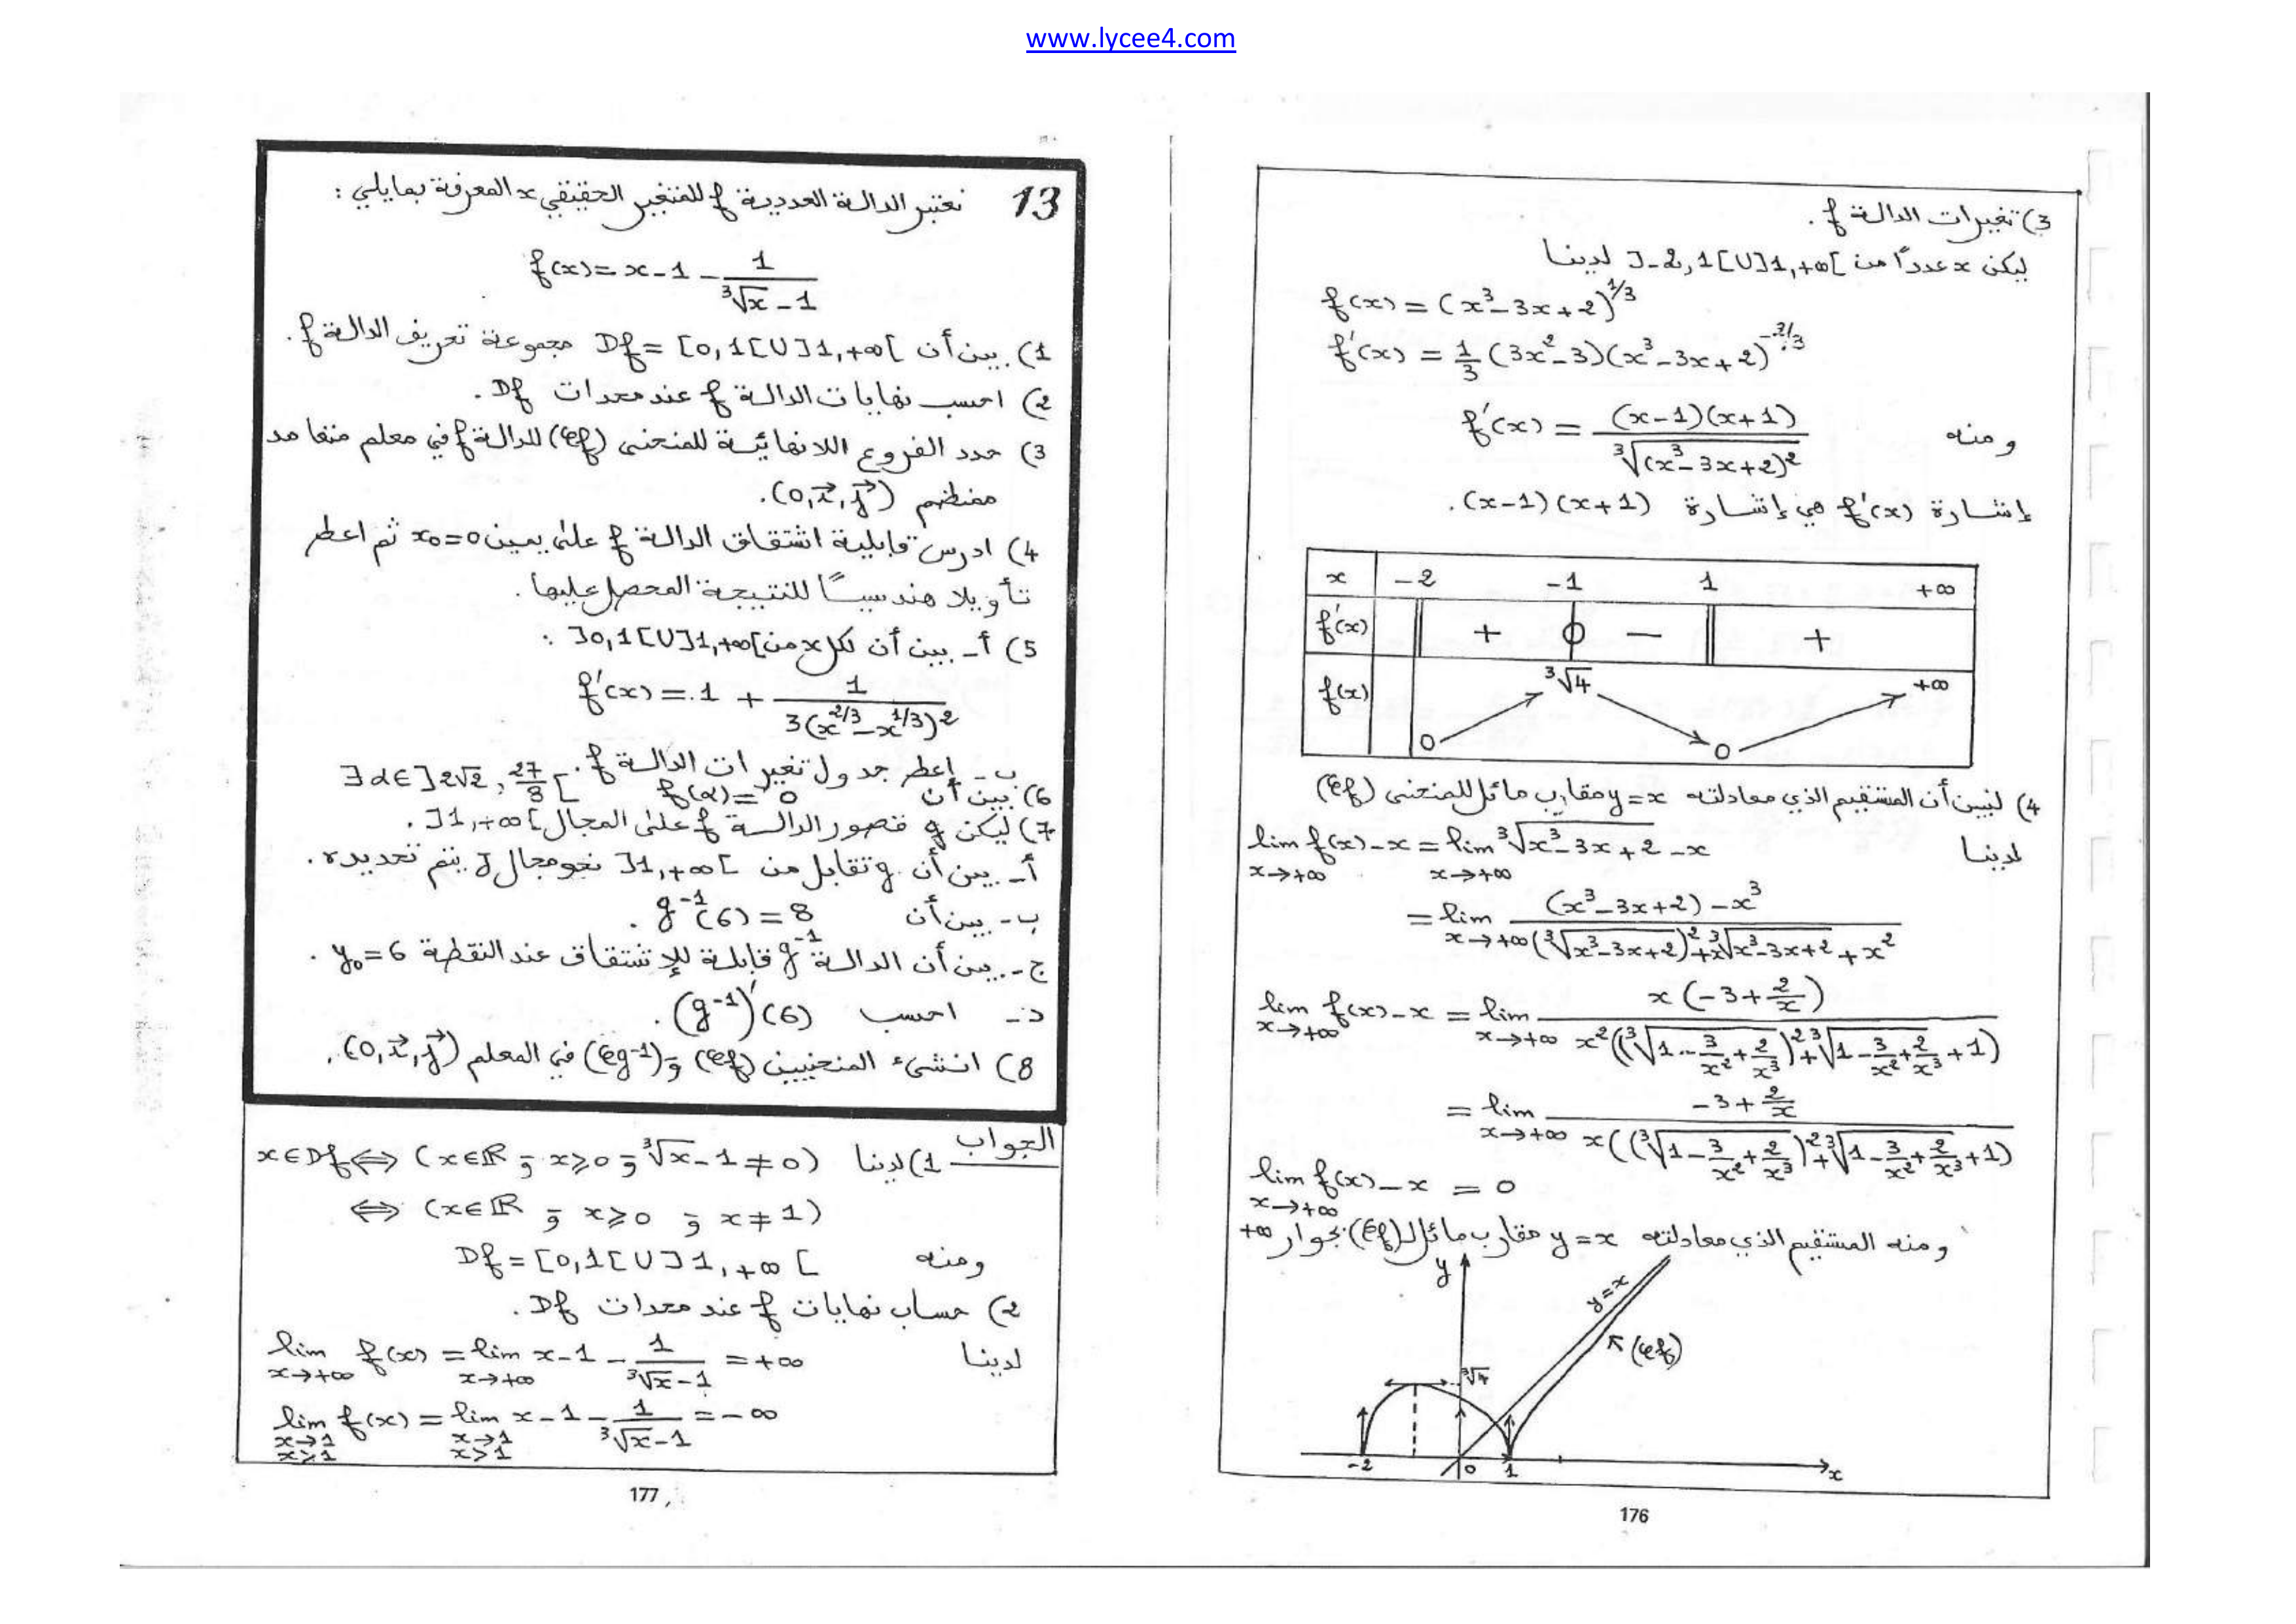 www.lycee4.com
3) تغيرات الدالة f.
ليكن x عددًا من ]-2,1[U]1,+∞[ لدينا
f(x) = (x³-3x+2)^{1/3}
f'(x) = 1/3 (3x²-3)(x³-3x+2)^{-2/3}
ومنه f'(x) = (x-1)(x+1) / ∛(x³-3x+2)²
إشارة f'(x) هي إشارة (x-1)(x+1).
x -2 -1 1 +∞
f'(x) + 0 - +
f(x) 0 ∛4 0 +∞
4) لنبين أن المستقيم الذي معادلته y=x مقارب مائل للمنحنى (Cf)
لدينا lim_{x→+∞} f(x)-x = lim_{x→+∞} ∛(x³-3x+2) -x
= lim_{x→+∞} ((x³-3x+2)-x³) / ((∛(x³-3x+2))²+x∛(x³-3x+2)+x²)
lim_{x→+∞} f(x)-x = lim_{x→+∞} x(-3+2/x) / x²((∛(1-3/x²+2/x³))²+∛(1-3/x²+2/x³)+1)
= lim_{x→+∞} (-3+2/x) / x((∛(1-3/x²+2/x³))²+∛(1-3/x²+2/x³)+1)
lim_{x→+∞} f(x)-x = 0
ومنه المستقيم الذي معادلته y=x مقارب مائل لـ (Cf) بجوار +∞
y
y=x
(Cf)
∛4
-2 0 1 x
176
13 نعتبر الدالة العددية f للمتغير الحقيقي x المعرفة بمايلي :
f(x)=x-1 - 1/(∛x -1)
1) بين أن Df=[0,1[U]1,+∞[ مجموعة تعريف الدالة f.
2) احسب نهايات الدالة f عند محدات Df.
3) حدد الفروع اللانهائية للمنحنى (Cf) للدالة f في معلم متعامد
ممنظم (0,i⃗,j⃗).
4) ادرس قابلية اشتقاق الدالة f على يمين x₀=0 ثم اعط
تأويلا هندسيًا للنتيجة المحصل عليها.
5) أ- بين أن لكل x من ]0,1[U]1,+∞[ :
f'(x) = 1 + 1/(3(x^{2/3}-x^{1/3})²)
ب- إعط جدول تغيرات الدالة f.
6) بين أن ∃α∈]2√2, 27/8[ f(α)=0
7) ليكن g قصور الدالة f على المجال ]1,+∞[.
أ- بين أن g تقابل من ]1,+∞[ نحو مجال J يتم تحديده.
ب- بين أن g⁻¹(6)=8.
ج- بين أن الدالة g⁻¹ قابلة للإشتقاق عند النقطة y₀=6.
د- احسب (g⁻¹)'(6).
8) انشىء المنحنيين (Cf) و (Cg⁻¹) في المعلم (0,i⃗,j⃗).
الجواب 1) لدينا x∈Df ⟺ (x∈ℝ و x⩾0 و ∛x-1≠0)
⟺ (x∈ℝ و x⩾0 و x≠1)
ومنه Df=[0,1[U]1,+∞[
2) حساب نهايات f عند محدات Df.
لدينا lim_{x→+∞} f(x) = lim_{x→+∞} x-1 - 1/(∛x-1) = +∞
lim_{x→1, x>1} f(x) = lim_{x→1, x>1} x-1 - 1/(∛x-1) = -∞
177